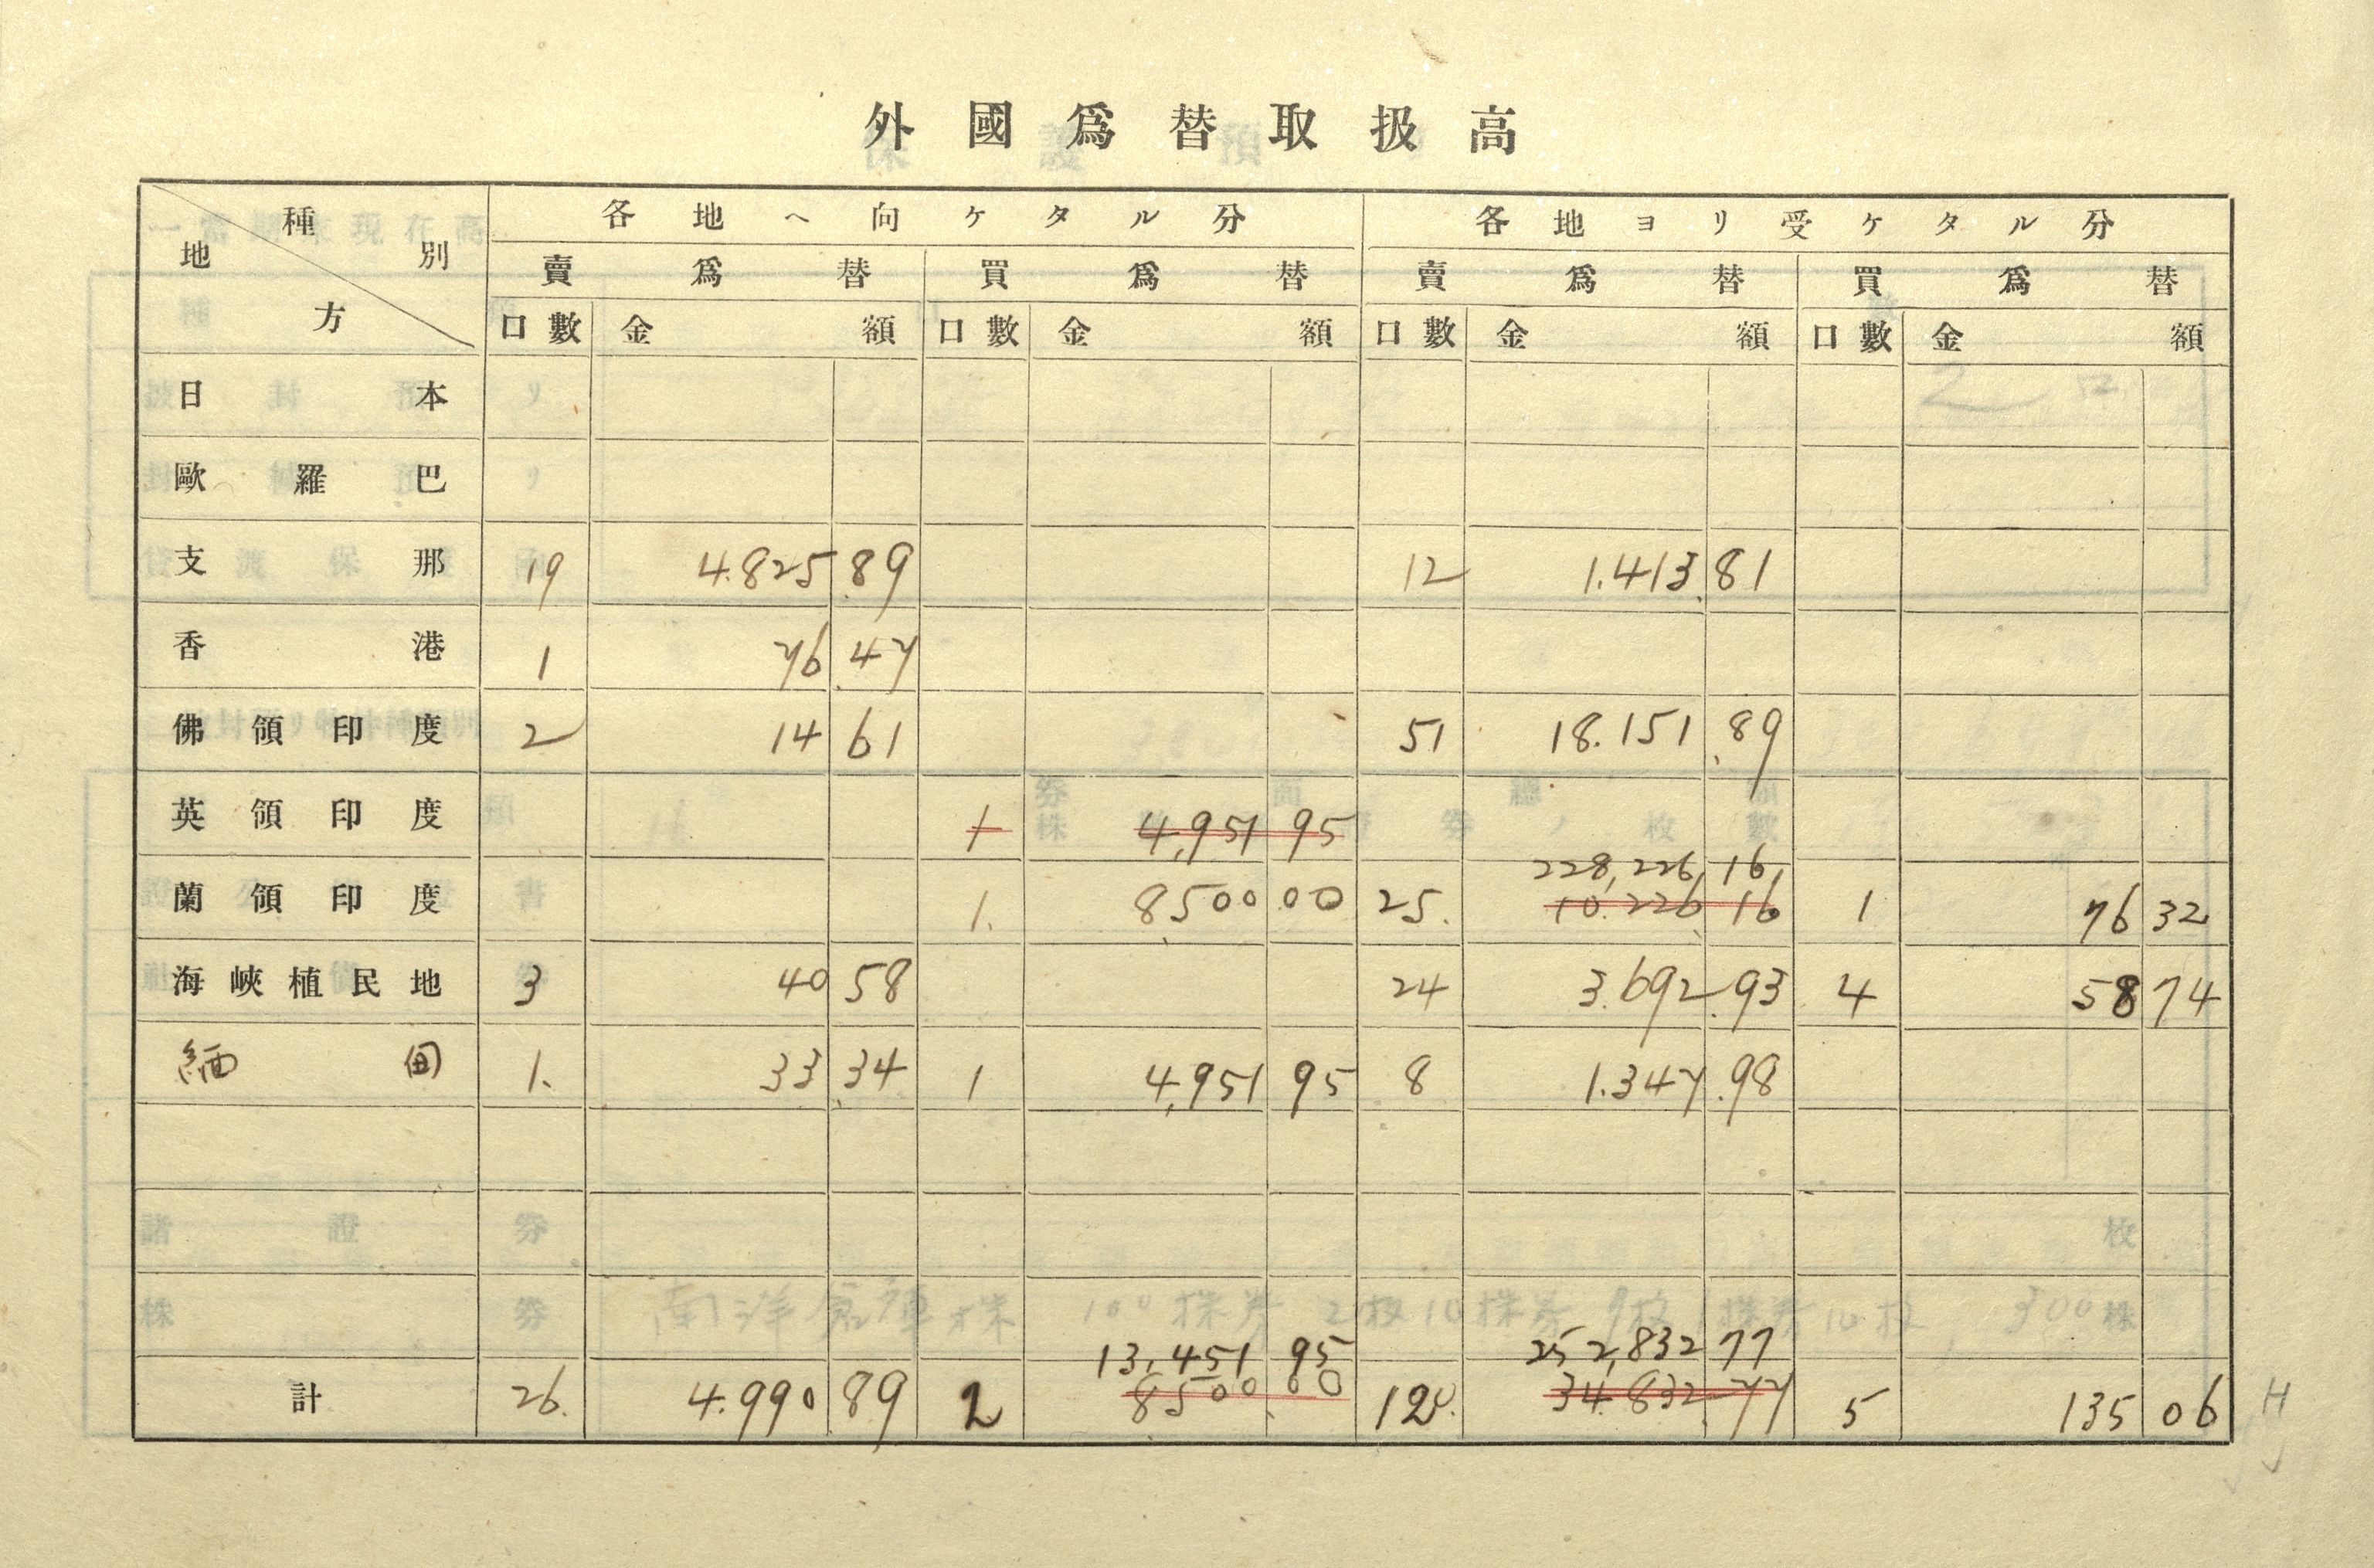 外國爲替取扱高
種別 地方 各地ヘ向ケタル分 各地ヨリ受ケタル分
賣爲替 買爲替 賣爲替 買爲替
口數 金額 口數 金額 口數 金額 口數 金額
日本
歐羅巴
支那 19 4.825.89 12 1.413.81
香港 1 76.47
佛領印度 2 14 61 51 18.151.89
英領印度 1 4,951 95
228,226,16
蘭領印度 1. 8,500.00 25. 10.226.16 1 76 32
海峽植民地 3 40 58 24 3.692.93 4 58 74
緬甸 1. 33.34 1 4,951 95 8 1.347.98
13,451 95 252,832 77
計 26. 4.990 89 2 8,500.00 120. 34.832.77 5 135 06